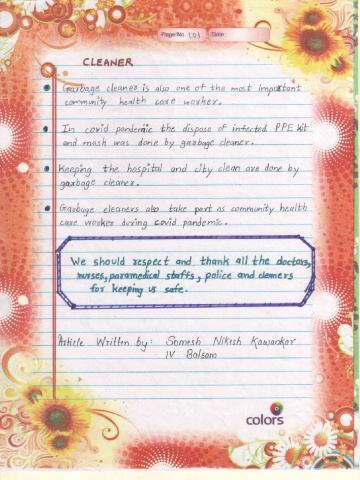 Page No. 101 Date
CLEANER
Garbage cleaner is also one of the most important
community health care worker.
In covid pandemic the dispose of infected PPE kit
and mask was done by garbage cleaner.
Keeping the hospital and city clean are done by
garbage cleaner.
Garbage cleaners also take part as community health
care worker during covid pandemic.
We should respect and thank all the doctors,
nurses, paramedical staffs, police and cleaners
for keeping us safe.
Article Written by: Somesh Nikesh Kawankar
IV Balsam
colors